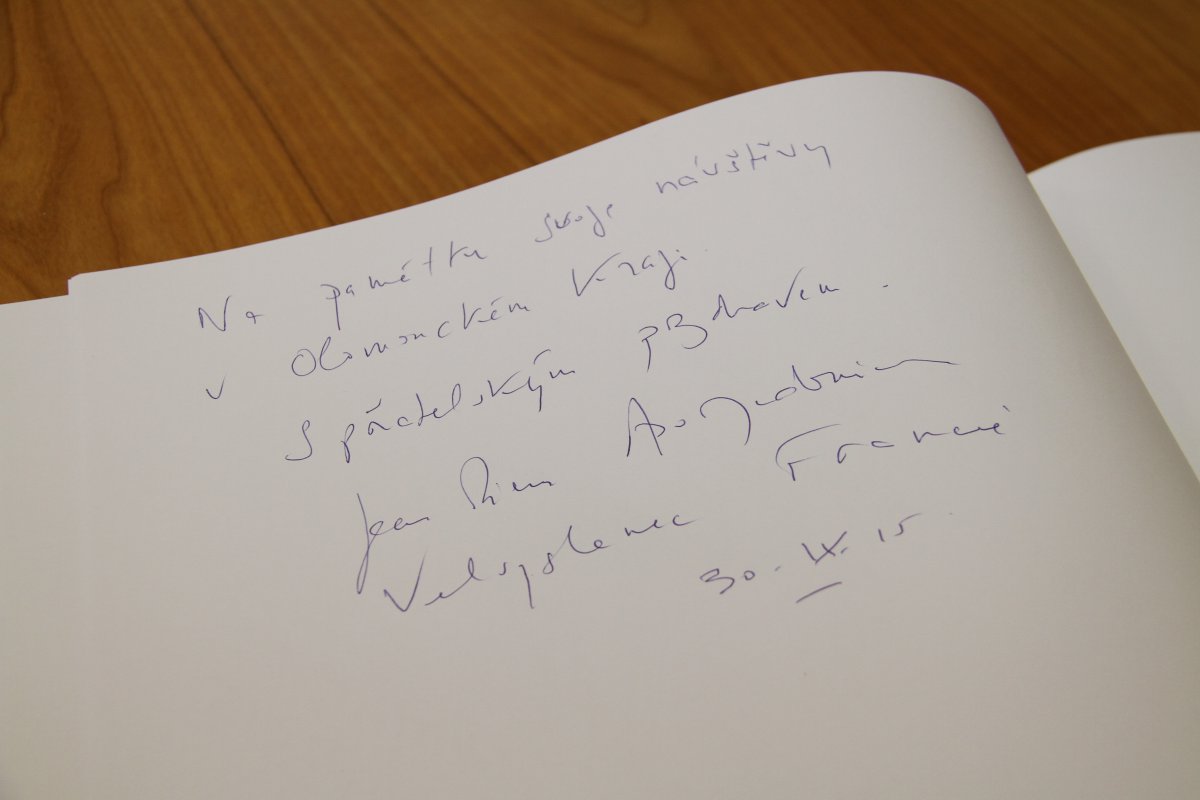 Na památku svoje návštívy
v Olomouckém Kraji.
S přátelským pozdravem.
Jean Pierre Asvazadourian
Velvyslanec Francié
30. IX. 15.